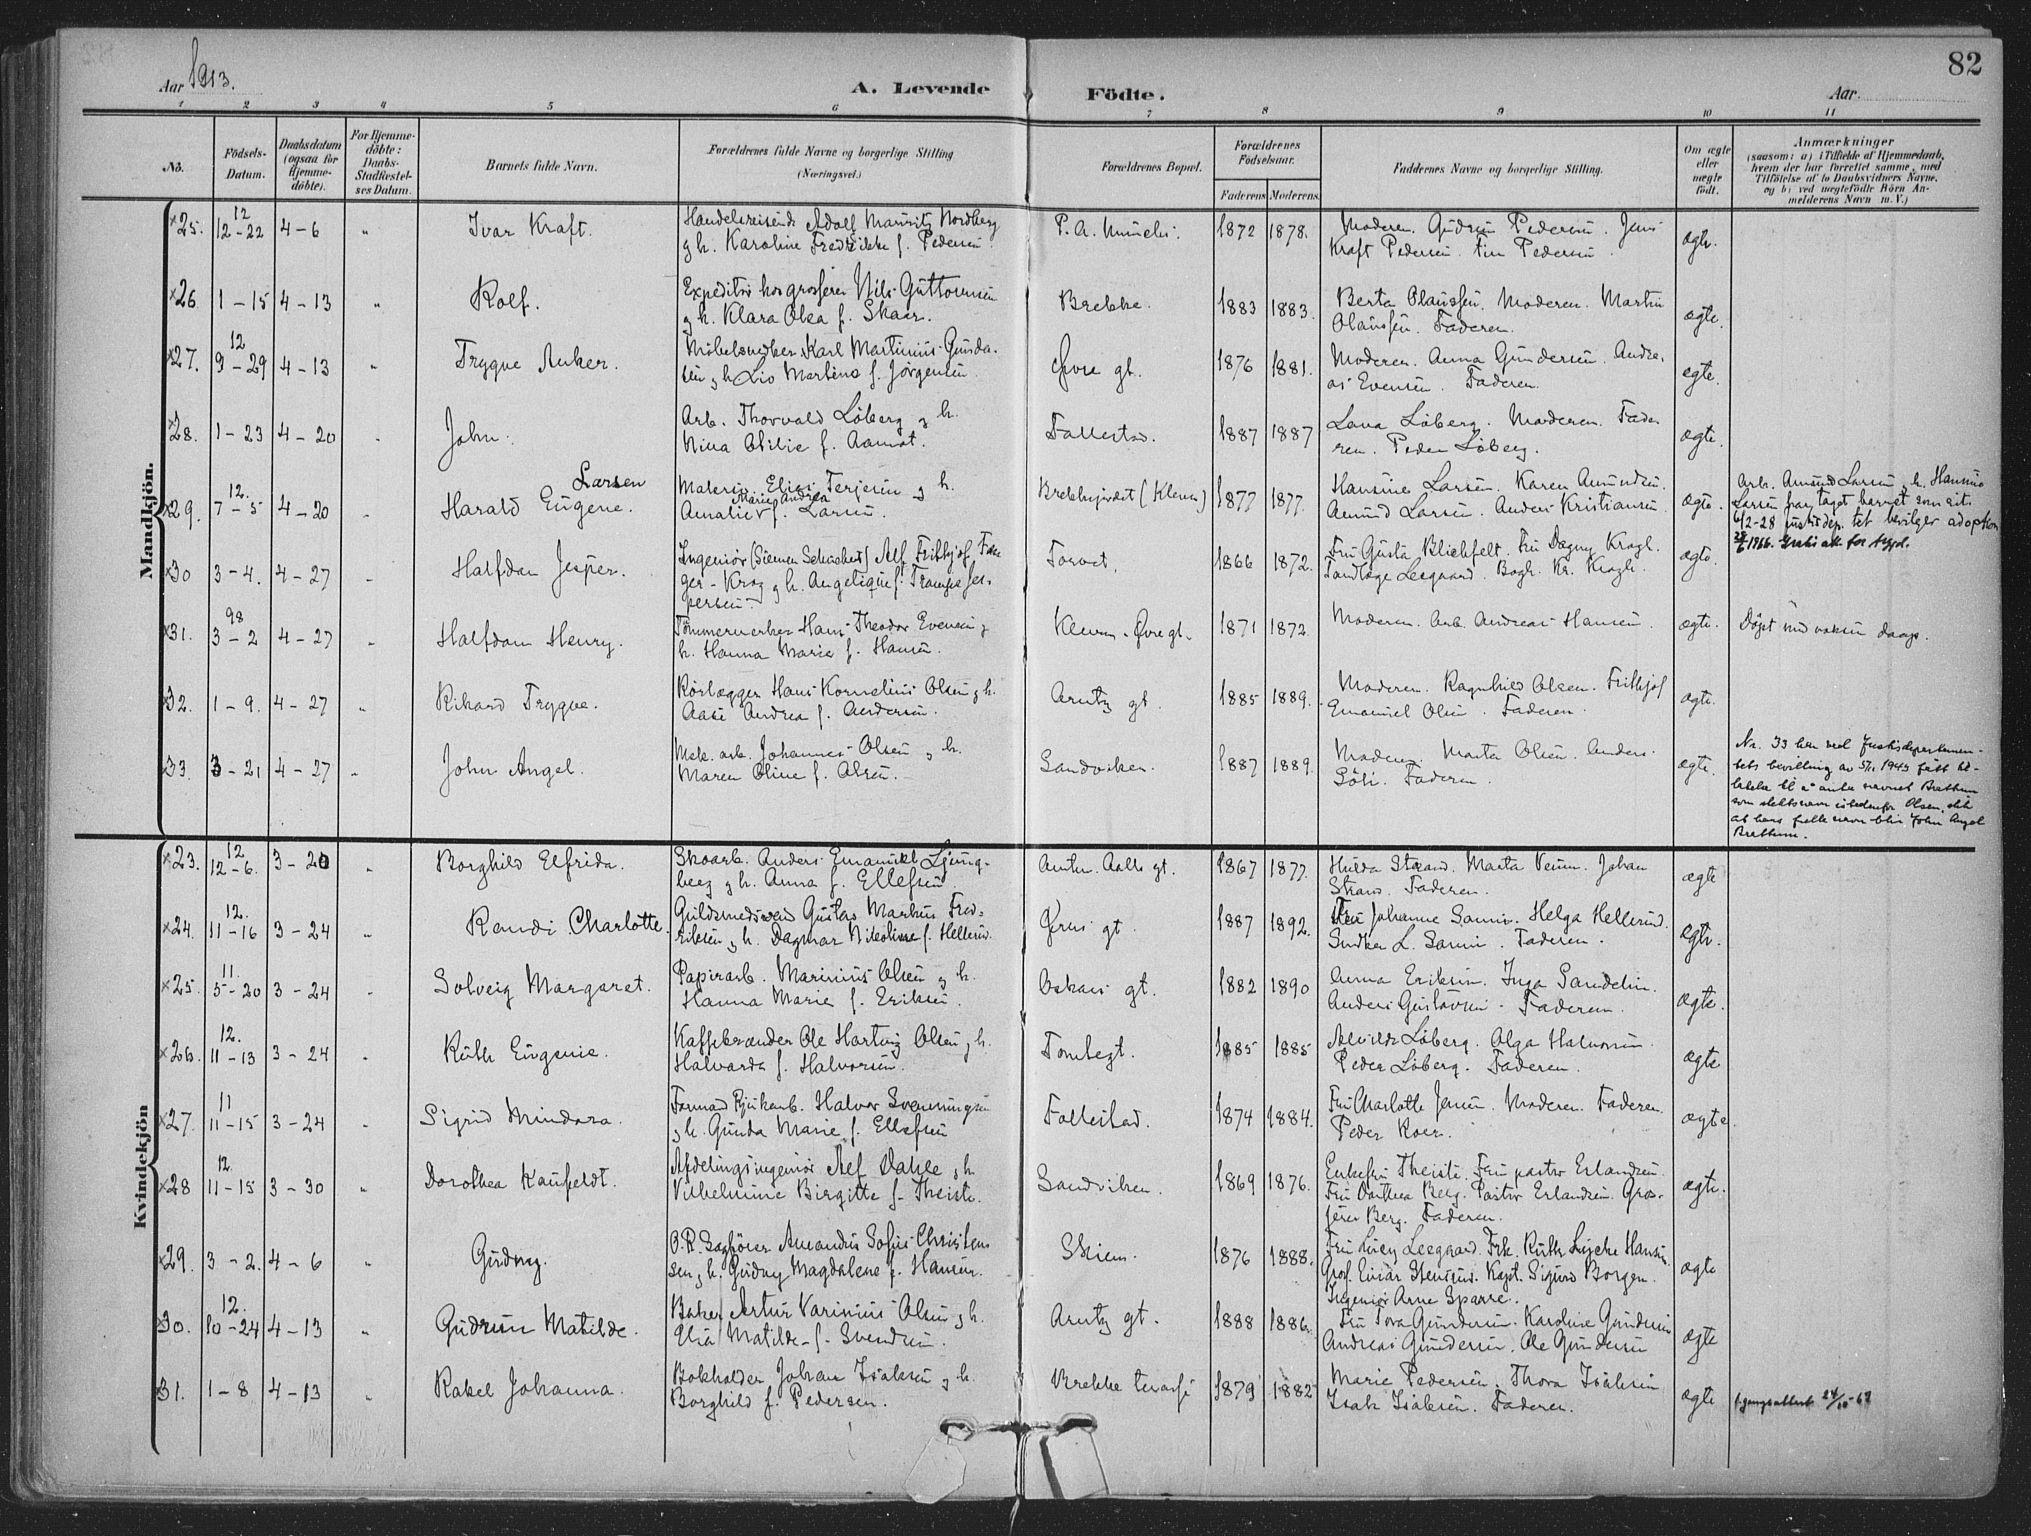 82
Aar 1913.
A. Levende Födte.
Aar
1 2 3 4 5 6 7 8 9 10 11
No.
Födsels-Datum.
Daabsdatum (ogsaa for Hjemme-döbte).
For Hjemme-döbte: Daabs-Stadfæstel-ses Datum.
Barnets fulde Navn.
Forældrenes fulde Navne og borgerlige Stilling (Næringsvei.)
Forældrenes Bopæl.
Forældrenes Födselsaar.
Faderens Moderens
Faddernes Navne og borgerlige Stilling.
Om ægte eller uægte födt.
Anmærkninger
(saasom: a) i Tilfælde af Hjemmedaab,
hvem der har forrettet samme, med
Tilföielse af to Daabsvidners Navne,
og b) ved uægtefödte Börn An-
melderens Navn m. V.)
Mandkjön.
25. 12 12-22 4-6 " Ivar Kraft. Handelsreisende Adolf Mauritz Nordberg
g h. Karoline Fredrikke f. Pedersen
P. A. Munchs. 1872 1878. Moderen. Gudrun Pedersen. Jens
Kraft Pedersen. Finn Pedersen. ægte.
26. 1-15 4-13 " Rolf. Expeditör hos grosserer Nils Guttormsen
g h. Klara Olea f. Skaar.
Brekke. 1883 1883. Berta Olaussen. Moderen. Martin
Olaussen. Faderen. ægte.
27. 12 9-29 4-13 " Trygve Anker. Möbelsnedker Karl Martinius Gunder-
sen g h Lis Martine f. Jörgensen.
Övre gt. 1876 1881. Moderen. Anna Gundersen. Andre-
as Evensen. Faderen. ægte.
28. 1-23 4-20 " John. Arb. Thorvald Löberg g h.
Nina Otilie f. Aamot.
Follestad. 1887 1887 Lava Löberg. Moderen. Fade-
ren. Peder Löberg. ægte.
29. 12. 7-5 4-20 Harald Eugene. Larsen
Maleren Elias Terjesen g h.
Amalie Marie Andrea f. Larsen.
Brekkejordet (Kleven) 1877 1877. Hansine Larsen. Karen Amundsen.
Amund Larsen. Anders Kristiansen. ægte.
Arb. Amund Larsen g h. Hansine
Larsen har tagt barnet som sit.
6/2-28 justisdep.tet bevilger adoption
30 3-4. 4-27 " Halfdan Jesper. Ingeniör (Siemen Schuckert) Alf Frithjof Fær
ger-Krog g h. Angelique f. Frampe Jes-
persen.
Torvet. 1866 1872. Fru Gusta Blichfelt. Fru Dagny Krogh.
Tandlæge Leegaard. Bogh. Kr. Krogh. ægte.
31. 98 3-2 4-27 " Halfdan Henry. Tömmermerker Hans Theodor Evensen g
h. Hanna Marie f. Hansen.
Kleven. Övregt. 1871 1872. Moderen. Arb. Andreas Hansen. ægte. Döpt ved voksen daap.
32. 1-9. 4-27 " Rikard Trygve. Rörlægger Hans Kornelius Olsen g h.
Aase Andrea f. Andersen.
Arntz gt. 1885 1889. Moderen. Ragnhild Olsen. Frithjof
Emanuel Olsen. Faderen. ægte.
33. 3-21 4-27 " John Angel. Mek. arb. Johannes Olsen g h.
Maren Oline f. Olsen.
Sandviken. 1887 1889. Moderen. Marta Olsen. Anders
Göli. Faderen. ægte.
Nr. 33 har ved Justisdepartemen-
tets bevilling av 5/11 1943 fått til-
latelse til å anta navnet Bratthem
som slektsnavn istedenfor Olsen, slik
at hans fulle navn blir John Angel
Bratthem.
Kvindekjön
23. 12 12-6. 3-20 " Borghild Elfrida. Skoarb. Anders Emanuel Ljung-
berg g h. Anna f. Ellefsen
Anton. Aalls gt. 1867 1877. Hulda Strand. Marta Venm. Johan
Strand. Faderen. ægte
24. 12. 11-16 3-24 " Randi Charlotte. Guldsmedsvend Gustav Markus Fred-
riksen g h. Dagmar Nikoline f. Hellerud.
Övre gt. 1887 1892. Fru Johanne Sanni. Helga Hellerud.
Snedker L. Sanni. Faderen. ægte.
25. 11. 5-20 3-24 " Solveig Margaret. Papirarb. Marinius Olsen g h.
Hanna Marie f. Eriksen.
Oskars gt. 1882 1890 Anna Eriksen. Inga Sandelin.
Anders Gustavsen. Faderen. ægte.
26. 12. 11-13 3-24 " Ruth Eugenie. Kaffebrænder Ole Hartvig Olsen g h.
Halvarda f. Halvorsen.
Tomtegt. 1885 1885 Alvilde Löberg. Olga Halvorsen.
Peder Löberg. Faderen. ægte
27. 11 11-15 3-24 " Sigrid Mindora. Formand Rjukanb. Halvor Svenningsen
g h. Gunda Marie f. Ellefsen
Follestad. 1874 1884. Fru Charlotte Jensen. Moderen. Faderen.
Peder Koer. ægte.
28 12. 11-15 3-30 " Dorothea Kaufeldt. Afdelingsingeniör Alf Dahle g h.
Vilhelmine Birgitte f. Theiste.
Sandviken. 1869 1876. Enkefru Theiste. Fru pastor Erlandsen.
Fru Dorthea Berg. Pastor Erlandsen. Gros-
serer Berg. Faderen. ægte.
29. 3-2. 4-6 " Gudny. O.R.Sagförer Amandus Sofus Christen
sen g h. Gudny Magdalene f. Hansen.
Skien. 1876 1888. Fru Lucy Leegaard. Frk. Ruth Lycke Hansen
Gros. Einar Stensrud. Kapt. Sigurd Borgen.
Ingeniör Arne Sparre. ægte
30. 12. 10-24 4-13 " Gudrun Matilde. Baker Artur Varinius Olsen g h.
Elia Matilde f. Svendsen.
Arntz gt. 1888 1886. Fru Tora Gundersen. Karoline Gundersen
Andreas Gundersen. Ole Gundersen ægte
31. 1-8 4-13 " Rakel Johanna. Bokholder Johan Isaksen g h.
Borghild f. Pedersen.
Brekke terasse 1879 1882 Marie Pedersen. Thora Isaksen.
Isak Isaksen. Faderen. ægte